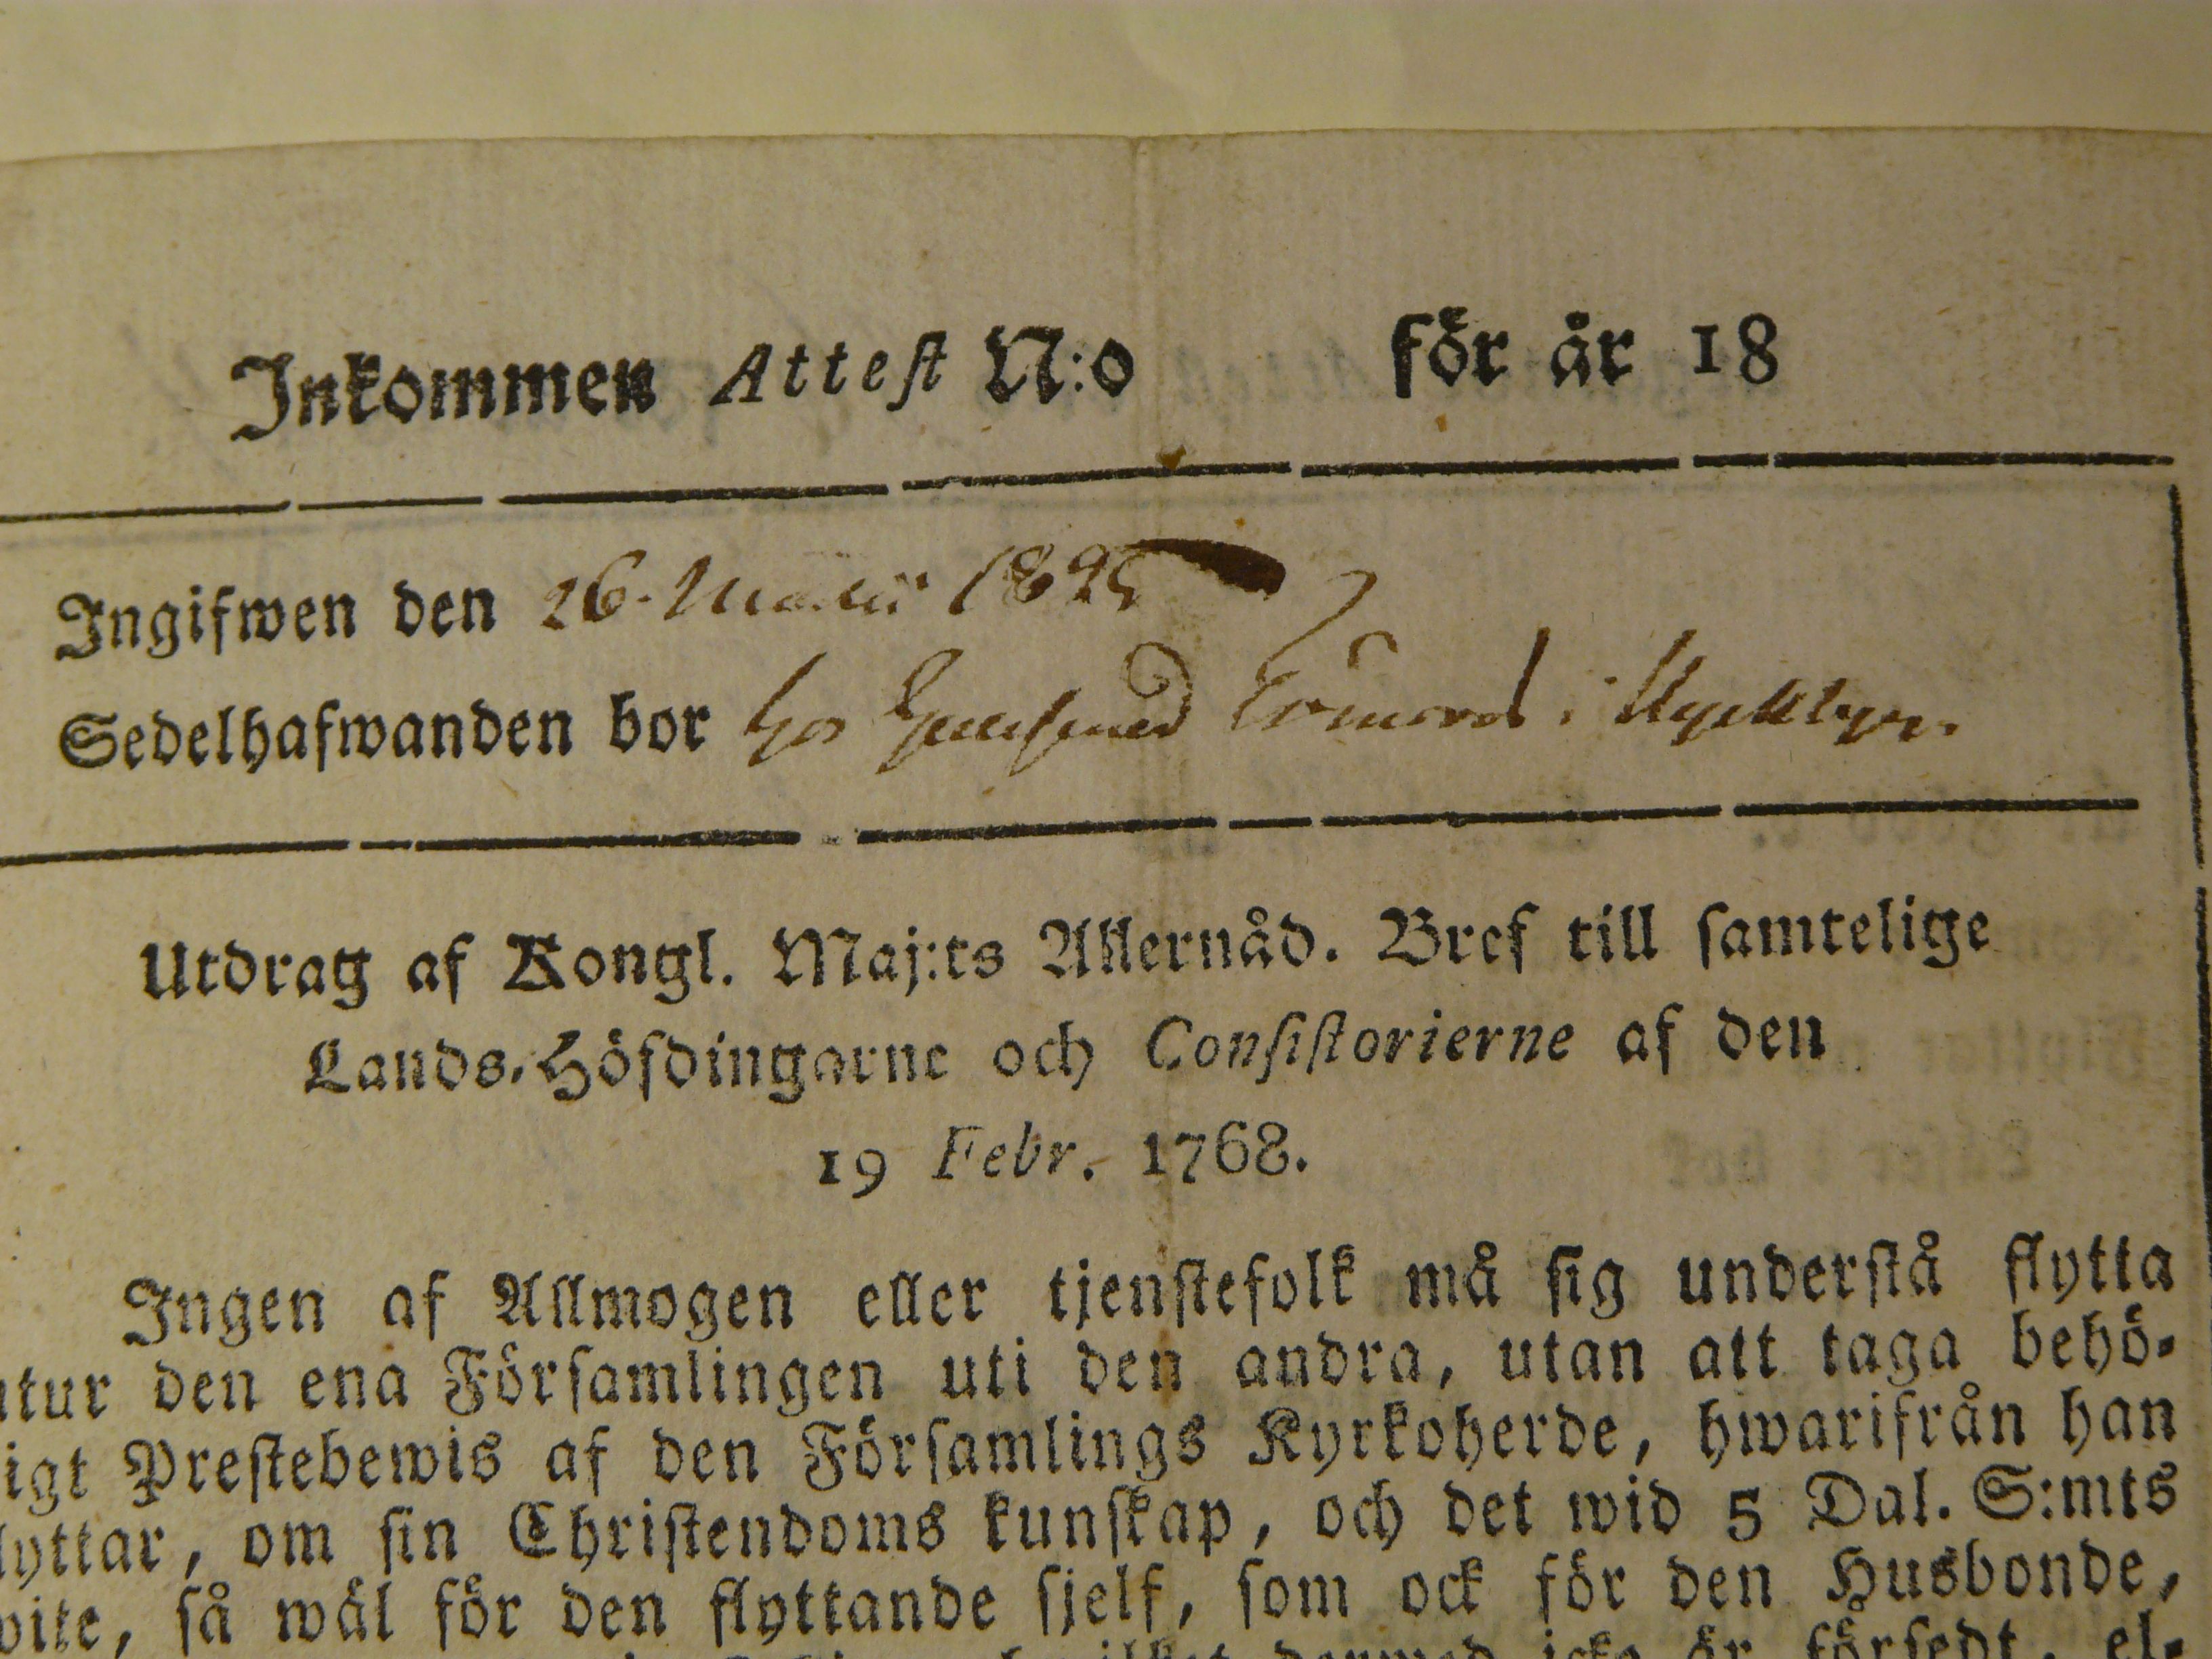 Inkommen Attest N:o för år 18
Ingifwen den 26. 1825
Sedelhafwanden bor hos i
Utdrag af Kongl. Maj:ts Allernåd. Bref till samtelige
Lands-Höfdingarne och Consistorierne af den
19 Febr. 1768.
Ingen af Allmogen eller tjenstefolk må sig understå flytta
utur den ena Församlingen uti den andra, utan att taga behö-
igt Prestebewis af den Församlings Kyrkoherde, hwarifrån han
lyttar, om sin Christendoms kunskap, och det wid 5 Dal. S:mts
wite, så wäl för den flyttande sjelf, som ock för den Husbonde,
icke är försedt, el-